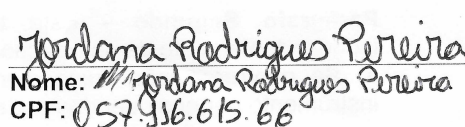 Jordana Rodrigues Pereira
Nome: Jordana Rodrigues Pereira
CPF: 057.916.615.66